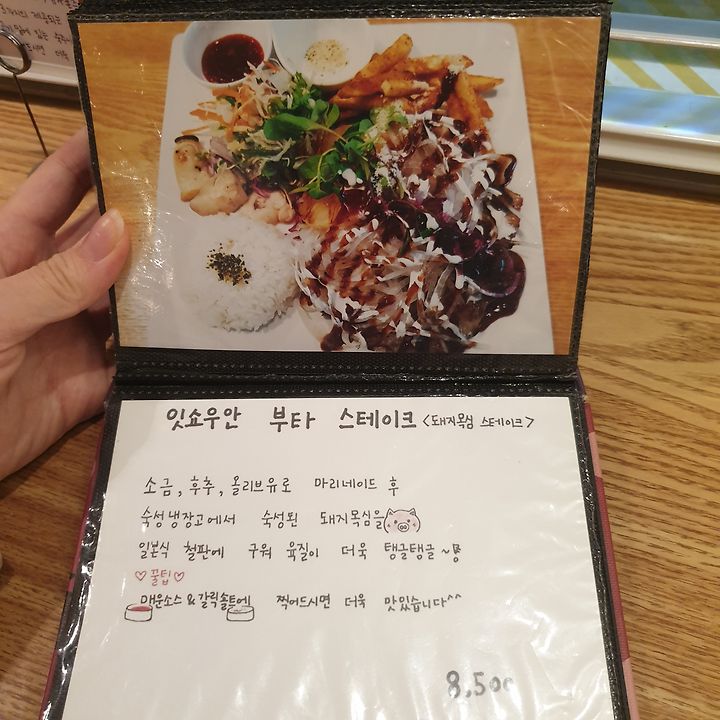 잇쇼우안 부타 스테이크 <돼지목심 스테이크>
소금, 후추, 올리브유로 마리네이드 후
숙성냉장고에서 숙성된 돼지목심을
일본식 철판에 구워 육질이 더욱 탱글탱글~
♡꿀팁♡
매운소스 & 갈릭솔트에 찍어드시면 더욱 맛있습니다^^
8,500